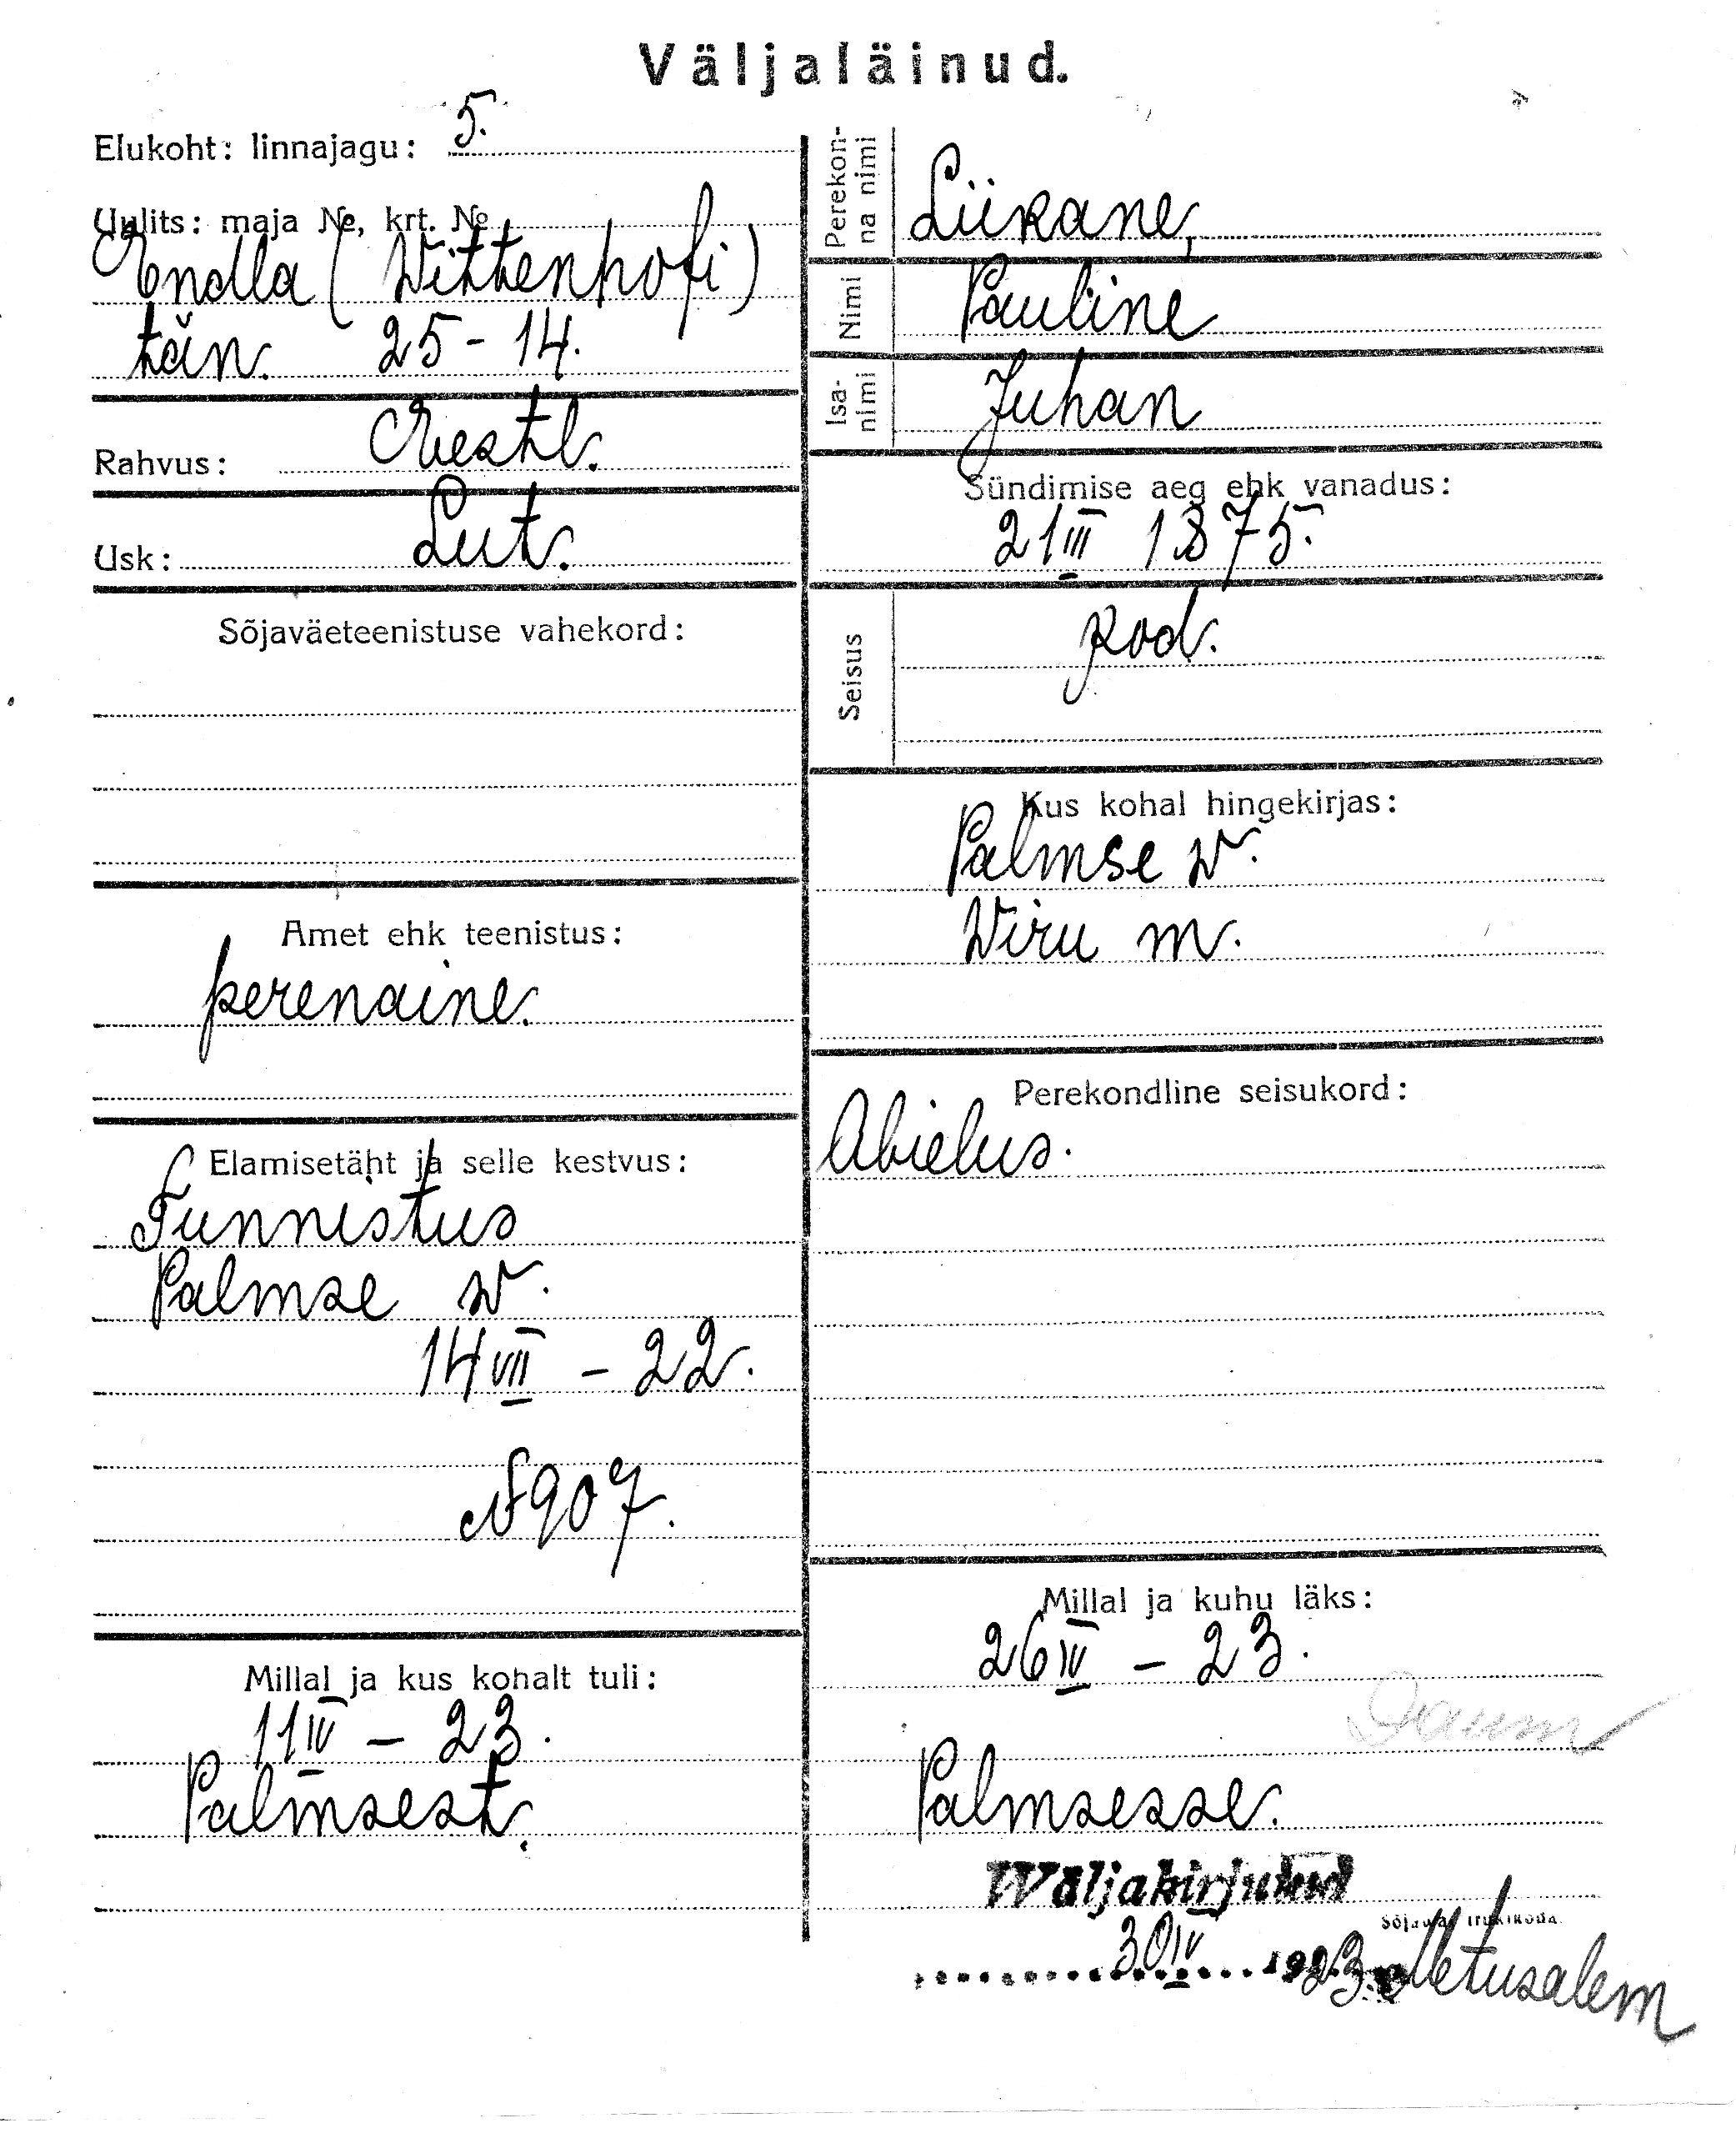 Väljaläinud.
Elukoht: linnajagu: 5.
Uulits: maja №, krt. №
Endla (Wittenhofi)
tän. 25-14.
Rahvus: Eestl.
Usk: Lut.
Sõjaväeteenistuse vahekord:
Amet ehk teenistus:
perenaine.
Elamisetäht ja selle kestvus:
Tunnistus
Palmse w.
14 VII - 22.
№ 907.
Millal ja kus kohalt tuli:
11 IV - 23.
Palmsest.
Perekon-
na nimi
Liikane,
Nimi
Pauline
Isa-
nimi
Juhan
Sündimise aeg ehk vanadus:
21 III 1875.
Seisus
kod.
Kus kohal hingekirjas:
Palmse w.
Wiru m.
Perekondline seisukord:
Abielus.
Millal ja kuhu läks:
26 IV - 23.
Palmsesse.
Wäljakirjutud
Sõjaväe trükikoda.
30 IV 1923. Metusalem